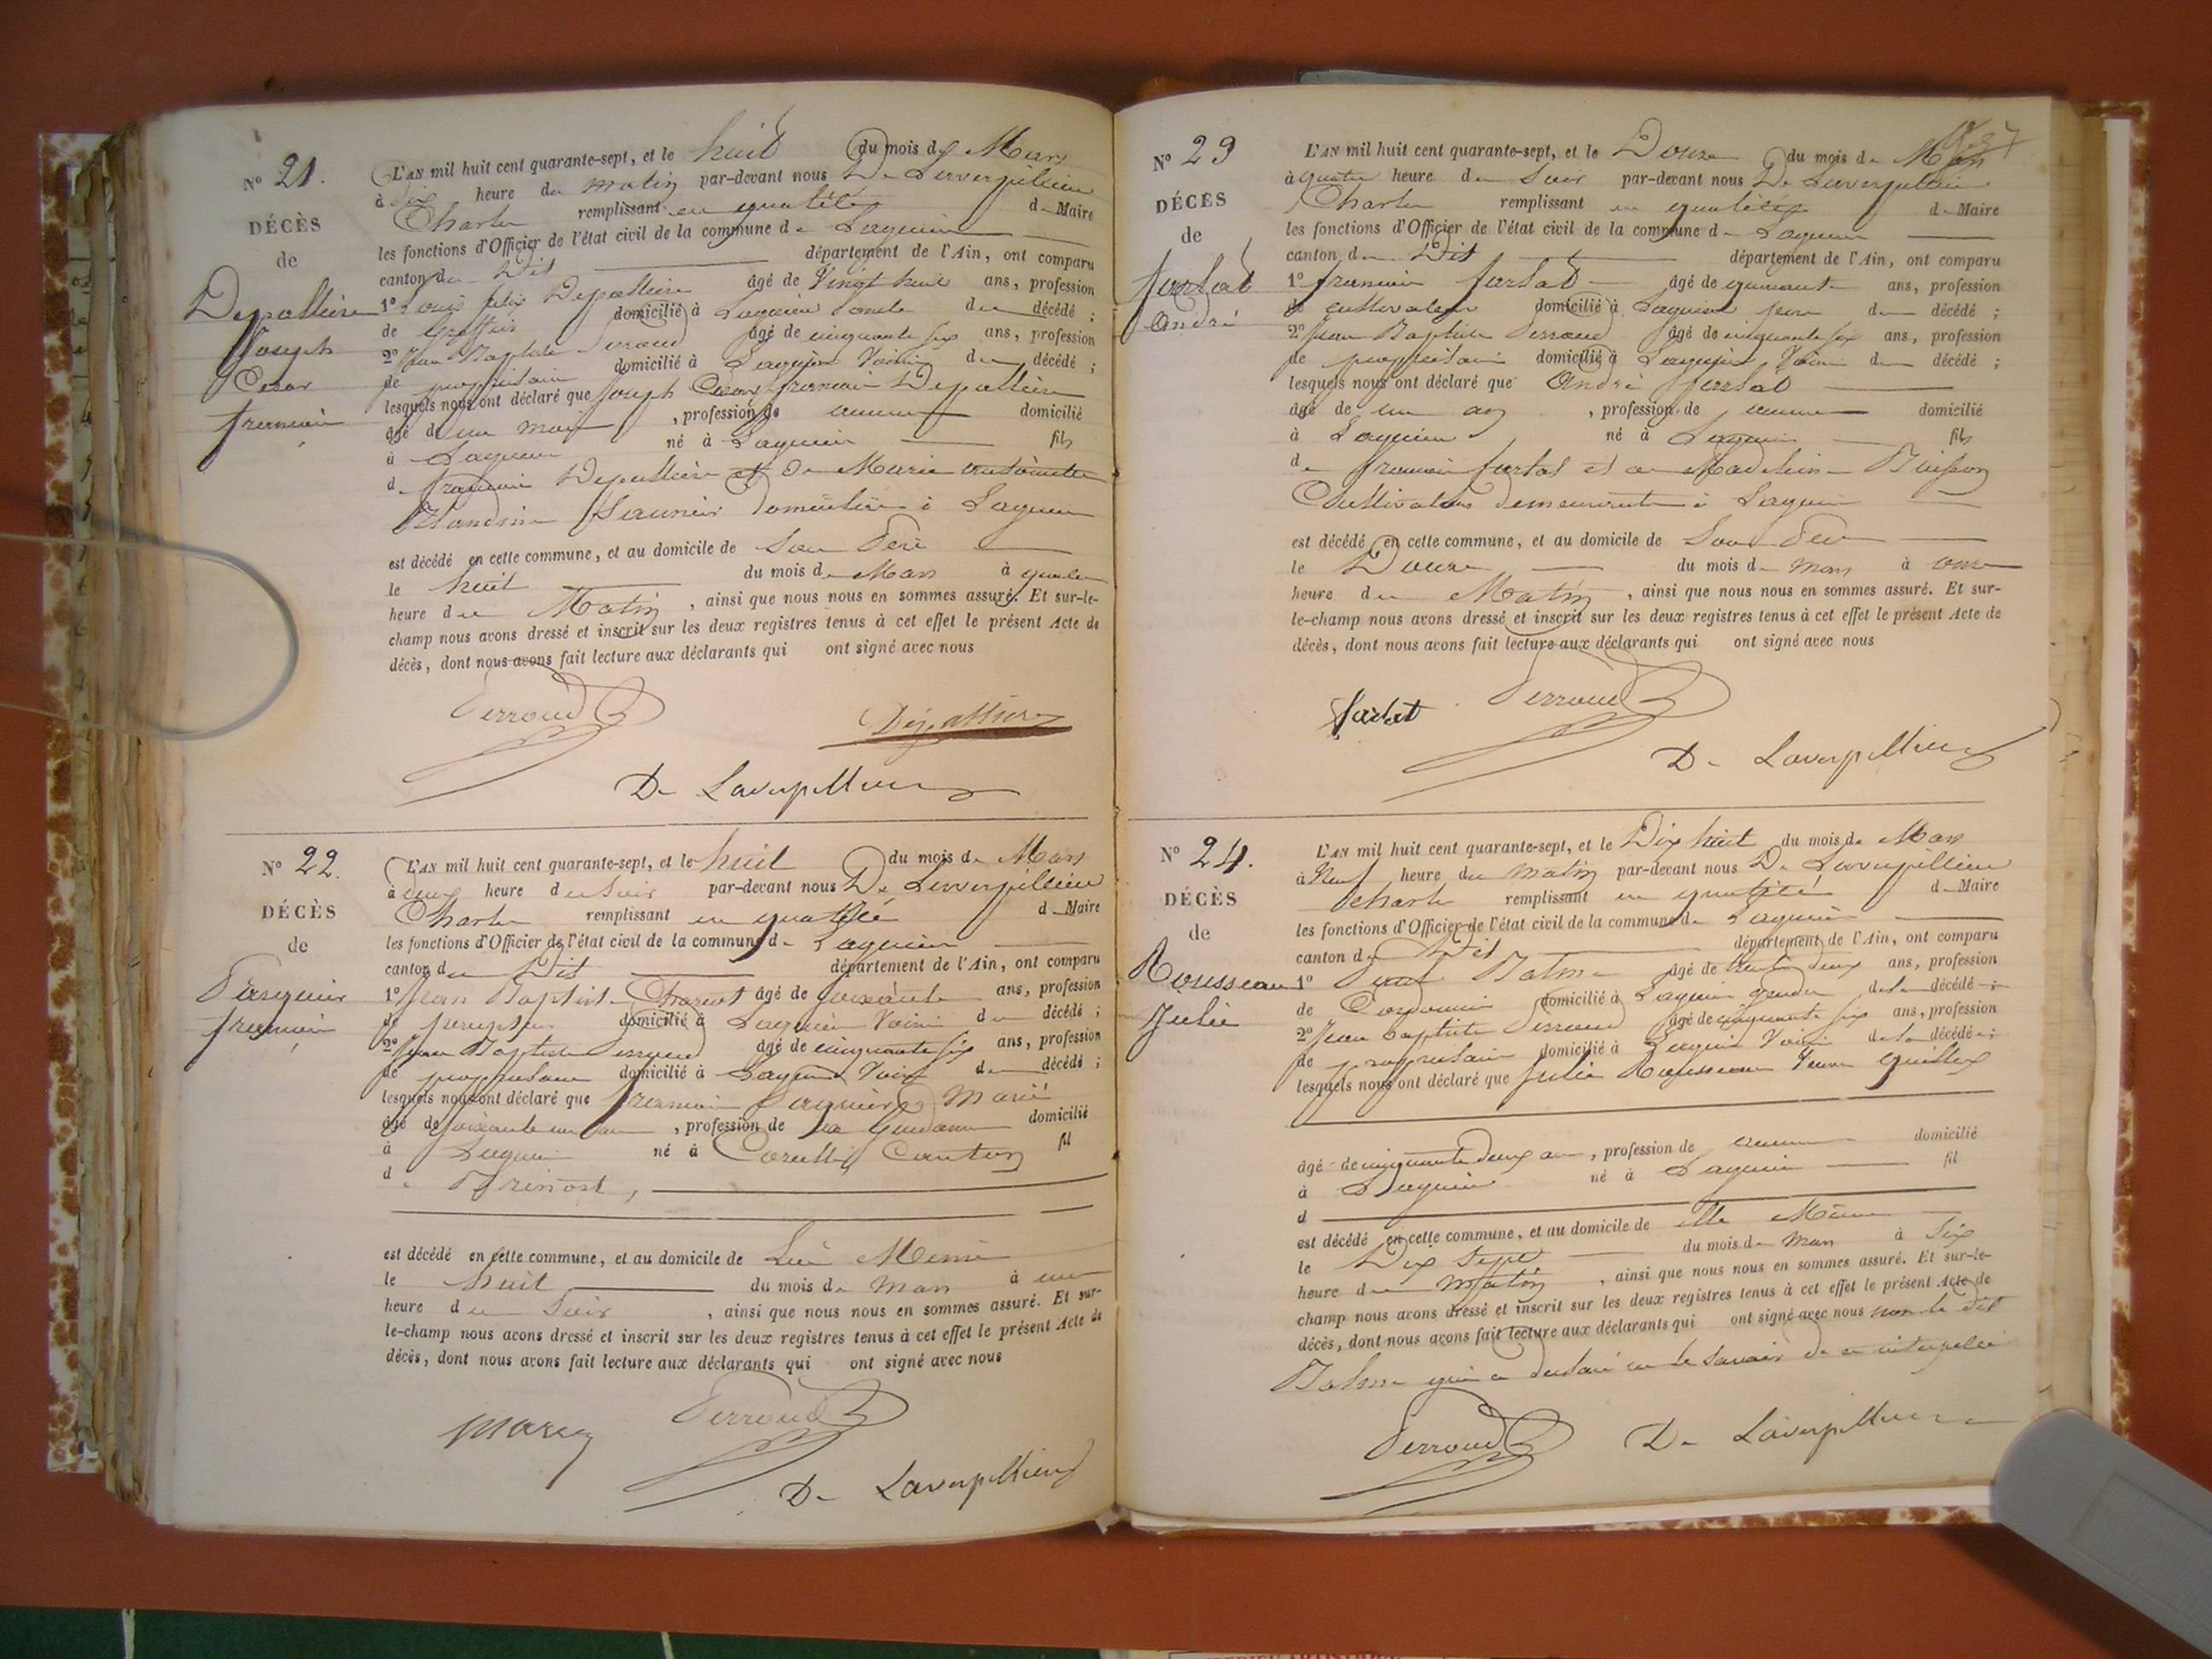 N° 21.
DÉCÈS
de
Depallière
Joseph
Cesar
francois
L'AN mil huit cent quarante-sept, et le huit du mois de Mars
à dix heure du matin par-devant nous De Laverpillière
Charles remplissant en qualité de Maire
les fonctions d'Officier de l'état civil de la commune de Lagnieu
canton du Dit département de l'Ain, ont comparu
1° Louis felix Depallière âgé de Vingt huit ans, profession
de Greffier domicilié à Lagnieu oncle du décédé ;
2° Jean Baptiste Perroud âgé de cinquante six ans, profession
de propriétaire domicilié à Lagnieu Voisin du décédé ;
lesquels nous ont déclaré que Joseph Cesar francois Depallière
âgé de un mois , profession de aucune domicilié
à Lagnieu né à Lagnieu fils
de francois Depallière et de Marie antoinette
Blandine domiciliés à Lagnieu
est décédé en cette commune, et au domicile de Son Père
le huit du mois de Mars à quatre
heure du Matin , ainsi que nous nous en sommes assuré. Et sur-le-
champ nous avons dressé et inscrit sur les deux registres tenus à cet effet le présent Acte de
décès, dont nous avons fait lecture aux déclarants qui ont signé avec nous
Perroud Depallière
De Laverpillière
N° 22.
DÉCÈS
de
Pasquier
francois
L'AN mil huit cent quarante-sept, et le huit du mois de Mars
à deux heure du Soir par-devant nous De Laverpillière
Charles remplissant en qualité de Maire
les fonctions d'Officier de l'état civil de la commune de Lagnieu
canton du Dit département de l'Ain, ont comparu
1° Jean Baptiste âgé de soixante ans, profession
de domicilié à Lagnieu Voisin du décédé ;
2° Jean Baptiste Perroud âgé de cinquante six ans, profession
de propriétaire domicilié à Lagnieu Voisin du décédé ;
lesquels nous ont déclaré que francois Pasquier Marié
âgé de soixante un ans , profession de domicilié
à Lagnieu né à Canton fil
de
est décédé en cette commune, et au domicile de Lui Même
le huit du mois de Mars à une
heure du Soir , ainsi que nous nous en sommes assuré. Et sur-
le-champ nous avons dressé et inscrit sur les deux registres tenus à cet effet le présent Acte de
décès, dont nous avons fait lecture aux déclarants qui ont signé avec nous
Perroud
De Laverpillière
N° 23
DÉCÈS
de
farlat
André
L'AN mil huit cent quarante-sept, et le Douze du mois de Mars
à quatre heure du Soir par-devant nous De Laverpillière
Charles remplissant en qualité de Maire
les fonctions d'Officier de l'état civil de la commune de Lagnieu
canton du Dit département de l'Ain, ont comparu
1° francois farlat âgé de quarante ans, profession
de cultivateur domicilié à Lagnieu père du décédé ;
2° Jean Baptiste Perroud âgé de cinquante six ans, profession
de propriétaire domicilié à Lagnieu Voisin du décédé ;
lesquels nous ont déclaré que André farlat
âgé de un an , profession de aucune domicilié
à Lagnieu né à Lagnieu fils
de francois farlat et de Madeleine Buisson
Cultivateurs demeurant à Lagnieu
est décédé en cette commune, et au domicile de Son Père
le Douze du mois de Mars à onze
heure du Matin , ainsi que nous nous en sommes assuré. Et sur-
le-champ nous avons dressé et inscrit sur les deux registres tenus à cet effet le présent Acte de
décès, dont nous avons fait lecture aux déclarants qui ont signé avec nous
farlat Perroud
De Laverpillière
N° 24.
DÉCÈS
de
Rousseau
Julie
L'AN mil huit cent quarante-sept, et le Dix huit du mois de Mars
à Neuf heure du Matin par-devant nous De Laverpillière
Charles remplissant en qualité de Maire
les fonctions d'Officier de l'état civil de la commune de Lagnieu
canton du Dit département de l'Ain, ont comparu
1° Balme âgé de trente deux ans, profession
de Cordonnier domicilié à Lagnieu gendre de la décédée ;
2° Jean baptiste Perroud âgé de cinquante six ans, profession
de propriétaire domicilié à Lagnieu Voisin de la décédée ;
lesquels nous ont déclaré que Julie Rousseau Veuve
âgé de cinquante deux ans , profession de aucune domicilié
à Lagnieu né à Lagnieu fil
d
est décédé en cette commune, et au domicile de elle Même
le Dix Sept du mois de Mars à Six
heure du Matin , ainsi que nous nous en sommes assuré. Et sur-le-
champ nous avons dressé et inscrit sur les deux registres tenus à cet effet le présent Acte de
décès, dont nous avons fait lecture aux déclarants qui ont signé avec nous non le dit
Balme qui a déclaré ne le savoir de ce interpellé
Perroud De Laverpillière